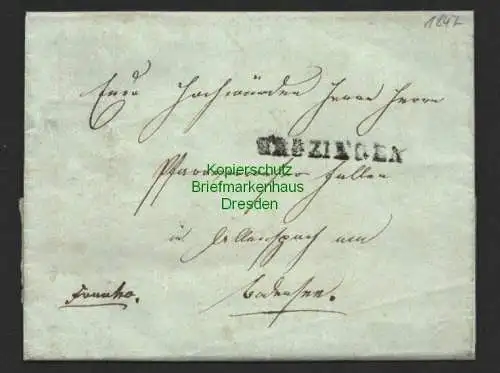 1847
Euer Hochwürden Herrn Herrn
GRÖZINGEN
Kopierschutz
Briefmarkenhaus
Dresden
in Allenspach am
Bodensee.
Franko.